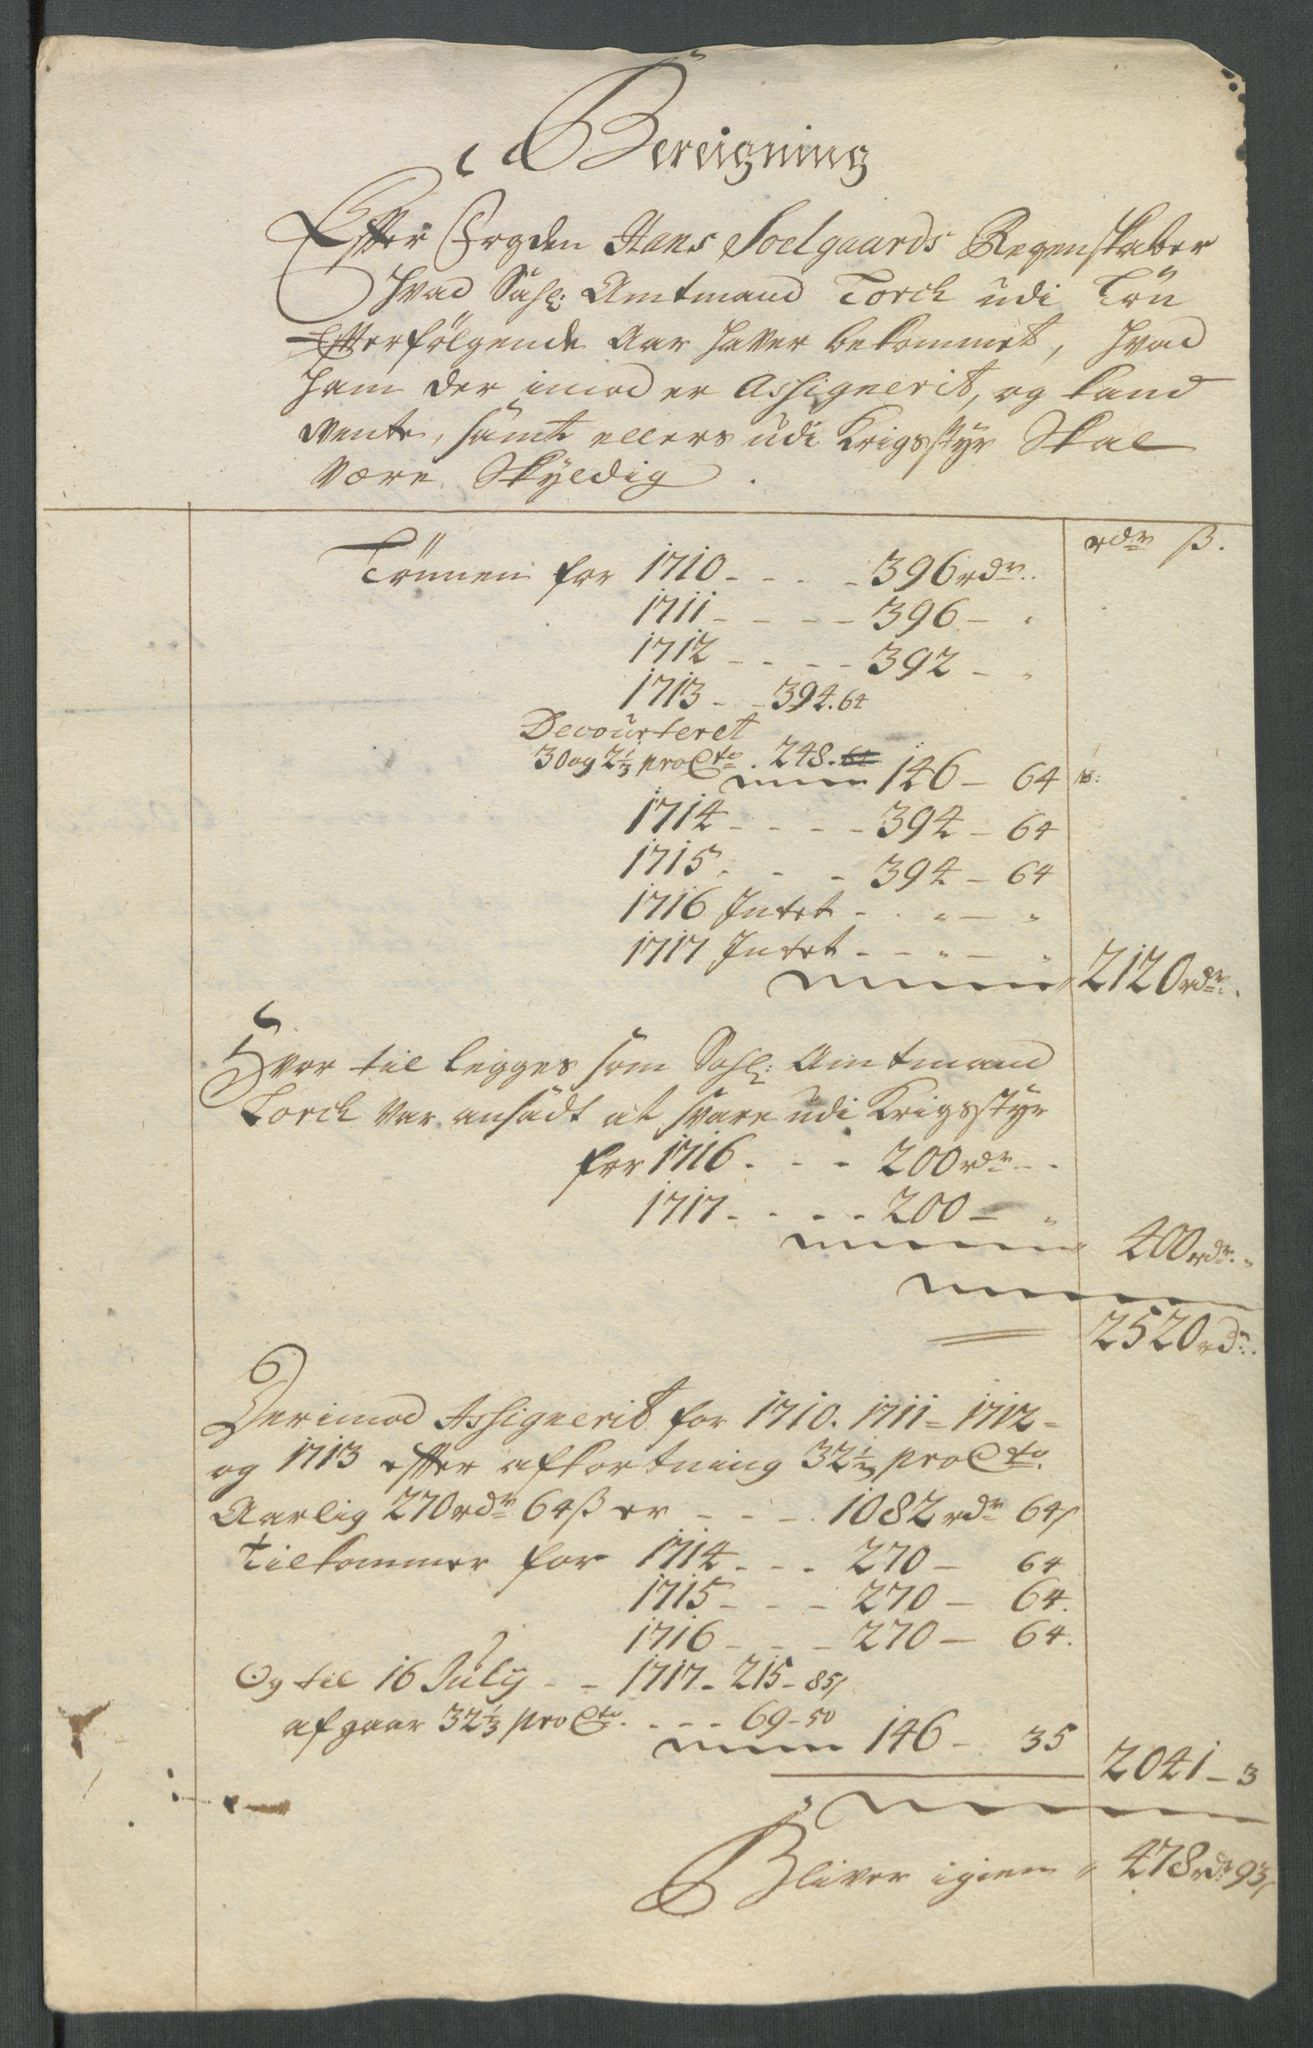 Bereigning
Efter Fogden Hans Soelgaards Regenskaber
hvad Sahl: Amtmand Torch udi Lön
Efterfölgende Aar haver bekommet, hvad
ham der imod er Assignerit, og kand
vente, samt ellers udi Krigsstyr Skal
være Skyldig.
rdr ß.
Lönnen for 1710 - - - - 396 rdr..
1711 - - - - 396 - "
1712 - - - - 392 - "
1713 - - 394. 64
Decourteret
30 og 2 1/3 pro Cto . 248. 64
146 - 64
1714 - - - - 394 - 64
1715 . - - 394 - 64
1716 Intet - . " - "
1717 Intet - - " - "
2120 rdr.
Hvor til legges som Sahl: Amtmand
Torch var ansadt at svare udi Krigsstyr
for 1716 . - - 200 rdr - -
1717 - . - - 200 - "
400 rdr. "
2520 rdr.
Derimod Assignerit for 1710. 1711 = 1712 =
og 1713 efter afkortning 32 1/3 pro Cto.
Aarlig 270 rdr 64 ß er - - - 1082 rdr 64 ß
Tilkommer for 1714 - - - 270 - 64
1715 - - - 270 - 64.
1716 - - - 270 - 64.
Og til 16 July - - 1717 - 215 - 85 ß
afgaar 32 1/3 pro Cto. - - - 69 - 50
146 - 35
2041 - 3
Bliver igien " 478 rdr 93 ß